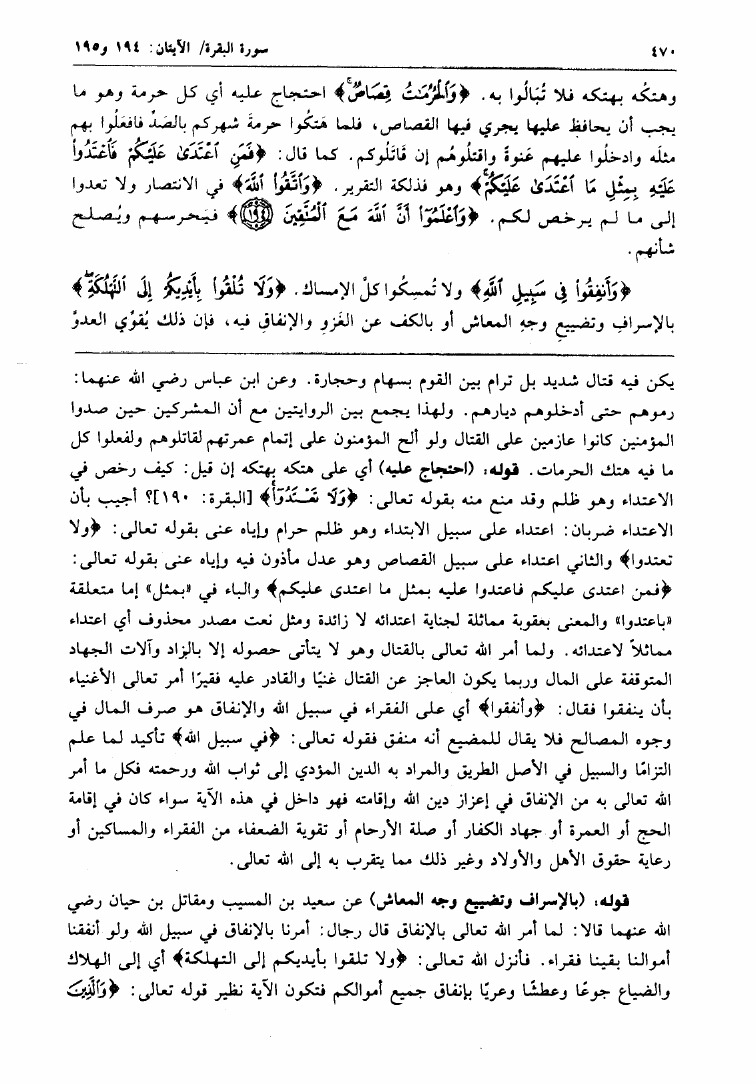 ٤٧٠ سورة البقرة/ الآيتان: ١٩٤ و١٩٥
وهتكُه بهتكه فلا تُبَالُوا به. ﴿وَالْحُرُمَاتُ قِصَاصٌ﴾ احتجاج عليه أي كل حرمة وهو ما
يجب أن يحافظ عليها يجري فيها القصاص، فلما هَتكُوا حرمةَ شهركم بالصَدِّ فافعَلُوا بهم
مثلَه وادخلُوا عليهم عَنوةً واقتلُوهُم إن قاتَلُوكم. كما قال: ﴿فَمَنِ اعْتَدَىٰ عَلَيْكُمْ فَاعْتَدُوا
عَلَيْهِ بِمِثْلِ مَا اعْتَدَىٰ عَلَيْكُمْ﴾ وهو فذلكة التقرير. ﴿وَاتَّقُوا اللَّهَ﴾ في الانتصار ولا تعدوا
إلى ما لم يرخص لكم. ﴿وَاعْلَمُوا أَنَّ اللَّهَ مَعَ الْمُتَّقِينَ ۝١٩٤﴾ فيَحرسهم ويُصلح
شأنهم.
﴿وَأَنفِقُوا فِي سَبِيلِ اللَّهِ﴾ ولا تُمسكُوا كلّ الإمساك. ﴿وَلَا تُلْقُوا بِأَيْدِيكُمْ إِلَى التَّهْلُكَةِ﴾
بالإسرافِ وتضييعِ وجهِ المعاش أو بالكف عن الغَزوِ والإنفاقِ فيه، فإن ذلك يُقوِّي العدوَّ
يكن فيه قتال شديد بل ترام بين القوم بسهام وحجارة. وعن ابن عباس رضي الله عنهما:
رموهم حتى أدخلوهم ديارهم. ولهذا يجمع بين الروايتين مع أن المشركين حين صدوا
المؤمنين كانوا عازمين على القتال ولو ألح المؤمنون على إتمام عمرتهم لقاتلوهم ولفعلوا كل
ما فيه هتك الحرمات. قوله: (احتجاج عليه) أي على هتكه بهتكه إن قيل: كيف رخص في
الاعتداء وهو ظلم وقد منع منه بقوله تعالى: ﴿وَلَا تَعْتَدُوا﴾ [البقرة: ١٩٠]؟ أجيب بأن
الاعتداء ضربان: اعتداء على سبيل الابتداء وهو ظلم حرام وإياه عنى بقوله تعالى: ﴿ولا
تعتدوا﴾ والثاني اعتداء على سبيل القصاص وهو عدل مأذون فيه وإياه عنى بقوله تعالى:
﴿فمن اعتدى عليكم فاعتدوا عليه بمثل ما اعتدى عليكم﴾ والباء في «بمثل» إما متعلقة
«باعتدوا» والمعنى بعقوبة مماثلة لجناية اعتدائه لا زائدة ومثل نعت مصدر محذوف أي اعتداء
مماثلاً لاعتدائه. ولما أمر الله تعالى بالقتال وهو لا يتأتى حصوله إلا بالزاد وآلات الجهاد
المتوقفة على المال وربما يكون العاجز عن القتال غنيًا والقادر عليه فقيرًا أمر تعالى الأغنياء
بأن ينفقوا فقال: ﴿وأنفقوا﴾ أي على الفقراء في سبيل الله والإنفاق هو صرف المال في
وجوه المصالح فلا يقال للمضيع أنه منفق فقوله تعالى: ﴿في سبيل الله﴾ تأكيد لما علم
التزامًا والسبيل في الأصل الطريق والمراد به الدين المؤدي إلى ثواب الله ورحمته فكل ما أمر
الله تعالى به من الإنفاق في إعزاز دين الله وإقامته فهو داخل في هذه الآية سواء كان في إقامة
الحج أو العمرة أو جهاد الكفار أو صلة الأرحام أو تقوية الضعفاء من الفقراء والمساكين أو
رعاية حقوق الأهل والأولاد وغير ذلك مما يتقرب به إلى الله تعالى.
قوله: (بالإسراف وتضييع وجه المعاش) عن سعيد بن المسيب ومقاتل بن حيان رضي
الله عنهما قالا: لما أمر الله تعالى بالإنفاق قال رجال: أمرنا بالإنفاق في سبيل الله ولو أنفقنا
أموالنا بقينا فقراء. فأنزل الله تعالى: ﴿ولا تلقوا بأيديكم إلى التهلكة﴾ أي إلى الهلاك
والضياع جوعًا وعطشًا وعريًا بإنفاق جميع أموالكم فتكون الآية نظير قوله تعالى: ﴿وَالَّذِينَ